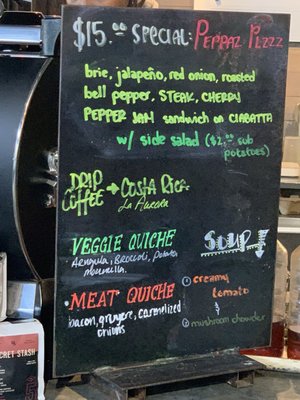 $15.00 SPECIAL: PEPPAZ PLZZ
brie, jalapeño, red onion, roasted
bell pepper, STEAK, CHERRY
PEPPER JAM sandwich on CIABATTA
w/ side salad ($2.00 sub
potatoes)
DRIP COFFEE → COSTA RICA
La Aurora
VEGGIE QUICHE
Arugula, Broccoli, potato,
mozzarella.
SOUP ↓
① creamy
tomato
&
② mushroom chowder
· MEAT QUICHE
bacon, gruyere, caramelized
onions
CRET STASH